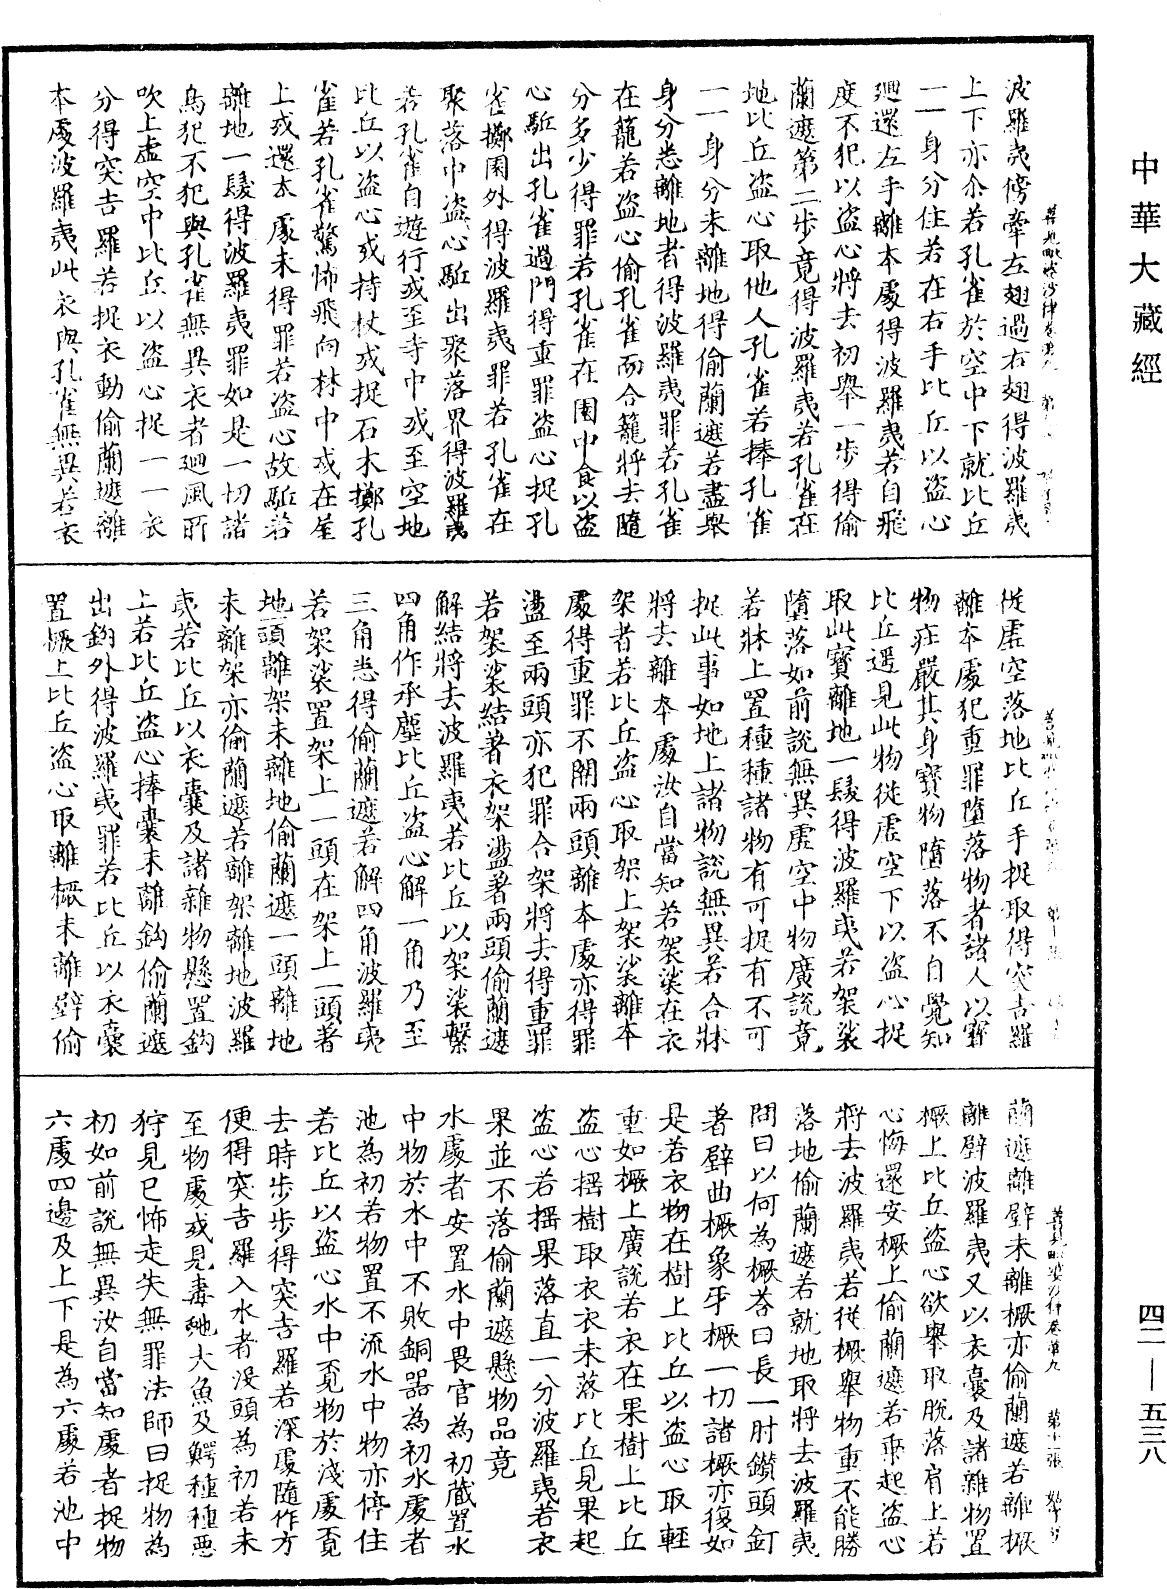 中華大藏經
波羅夷傍牽左翅過右翅得波羅夷
上下亦尒若孔雀於空中下就比丘
一一身分住若在右手比丘以盜心
迴還左手離本處得波羅夷若自飛
度不犯以盜心將去初舉一步得偷
蘭遮第二步竟得波羅夷若孔雀在
地比丘盜心取他人孔雀若捧孔雀
一一身分未離地得偷蘭遮若盡舉
身分悉離地者得波羅夷罪若孔雀
在籠若盜心偷孔雀而合籠將去隨
分多少得罪若孔雀在園中食以盜
心駈出孔雀過門得重罪盜心捉孔
雀擲園外得波羅夷罪若孔雀在
聚落中盜心駈出聚落界得波羅夷
若孔雀自遊行或至寺中或至空地
比丘以盜心或持杖或捉石木擲孔
雀若孔雀驚怖飛向林中或在屋
上或還本處未得罪若盜心故駈若
離地一髮得波羅夷罪如是一切諸
鳥犯不犯與孔雀無異衣者迴風所
吹上虛空中比丘以盜心捉一一衣
分得突吉羅若捉衣動偷蘭遮離
本處波羅夷此衣與孔雀無異若衣
從虛空落地比丘手捉取得突吉羅
離本處犯重罪墮落物者諸人以寶
物莊嚴其身寶物隨落不自覺知
比丘遥見此物從虛空下以盜心捉
取此寶離地一髮得波羅夷若袈裟
墮落如前說無異虛空中物廣說竟
若牀上置種種諸物有可捉有不可
捉此事如地上諸物說無異若合牀
將去離本處汝自當知若袈裟在衣
架者若比丘盜心取架上袈裟離本
處得重罪不關兩頭離本處亦得罪
盪至兩頭亦犯罪合架將去得重罪
若袈裟結著衣架盪著兩頭偷蘭遮
解結將去波羅夷若比丘以袈裟繫
四角作承塵比丘盜心解一角乃至
三角悉得偷蘭遮若解四角波羅夷
若袈裟置架上一頭在架上一頭著
地頭離架未離地偷蘭遮一頭離地
未離架亦偷蘭遮若離架離地波羅
夷若比丘以衣囊及諸雜物懸置鈎
上若比丘盜心捧囊未離鈎偷蘭遮
出鈎外得波羅夷罪若比丘以衣囊
置橛上比丘盜心取離橛未離壁偷
蘭遮離壁未離橛亦偷蘭遮若離橛
離壁波羅夷又以衣囊及諸雜物置
橛上比丘盜心欲舉取脫落肩上若
心悔還安橛上偷蘭遮若乘起盜心
將去波羅夷若從橛舉物重不能勝
落地偷蘭遮若就地取將去波羅夷
問曰以何為橛荅曰長一肘鑽頭釘
著壁曲橛象牙橛一切諸橛亦復如
是若衣物在樹上比丘以盜心取輕
重如橛上廣說若衣在果樹上比丘
盜心搖樹取衣衣未落比丘見果起
盜心若搖果落直一分波羅夷若衣
果並不落偷蘭遮懸物品竟
水處者安置水中畏官為初藏置水
中物於水中不敗銅器為初水處者
池為初若物置不流水中物亦停住
若比丘以盜心水中覓物於淺處覓
去時步步得突吉羅若深處隨作方
便得突吉羅入水者沒頭為初若未
至物處或見毒虵大魚及鰐種種惡
狩見已怖走失無罪法師曰捉物為
初如前說無異汝自當知處者捉物
六處四邊及上下是為六處若池中
四二—五三八